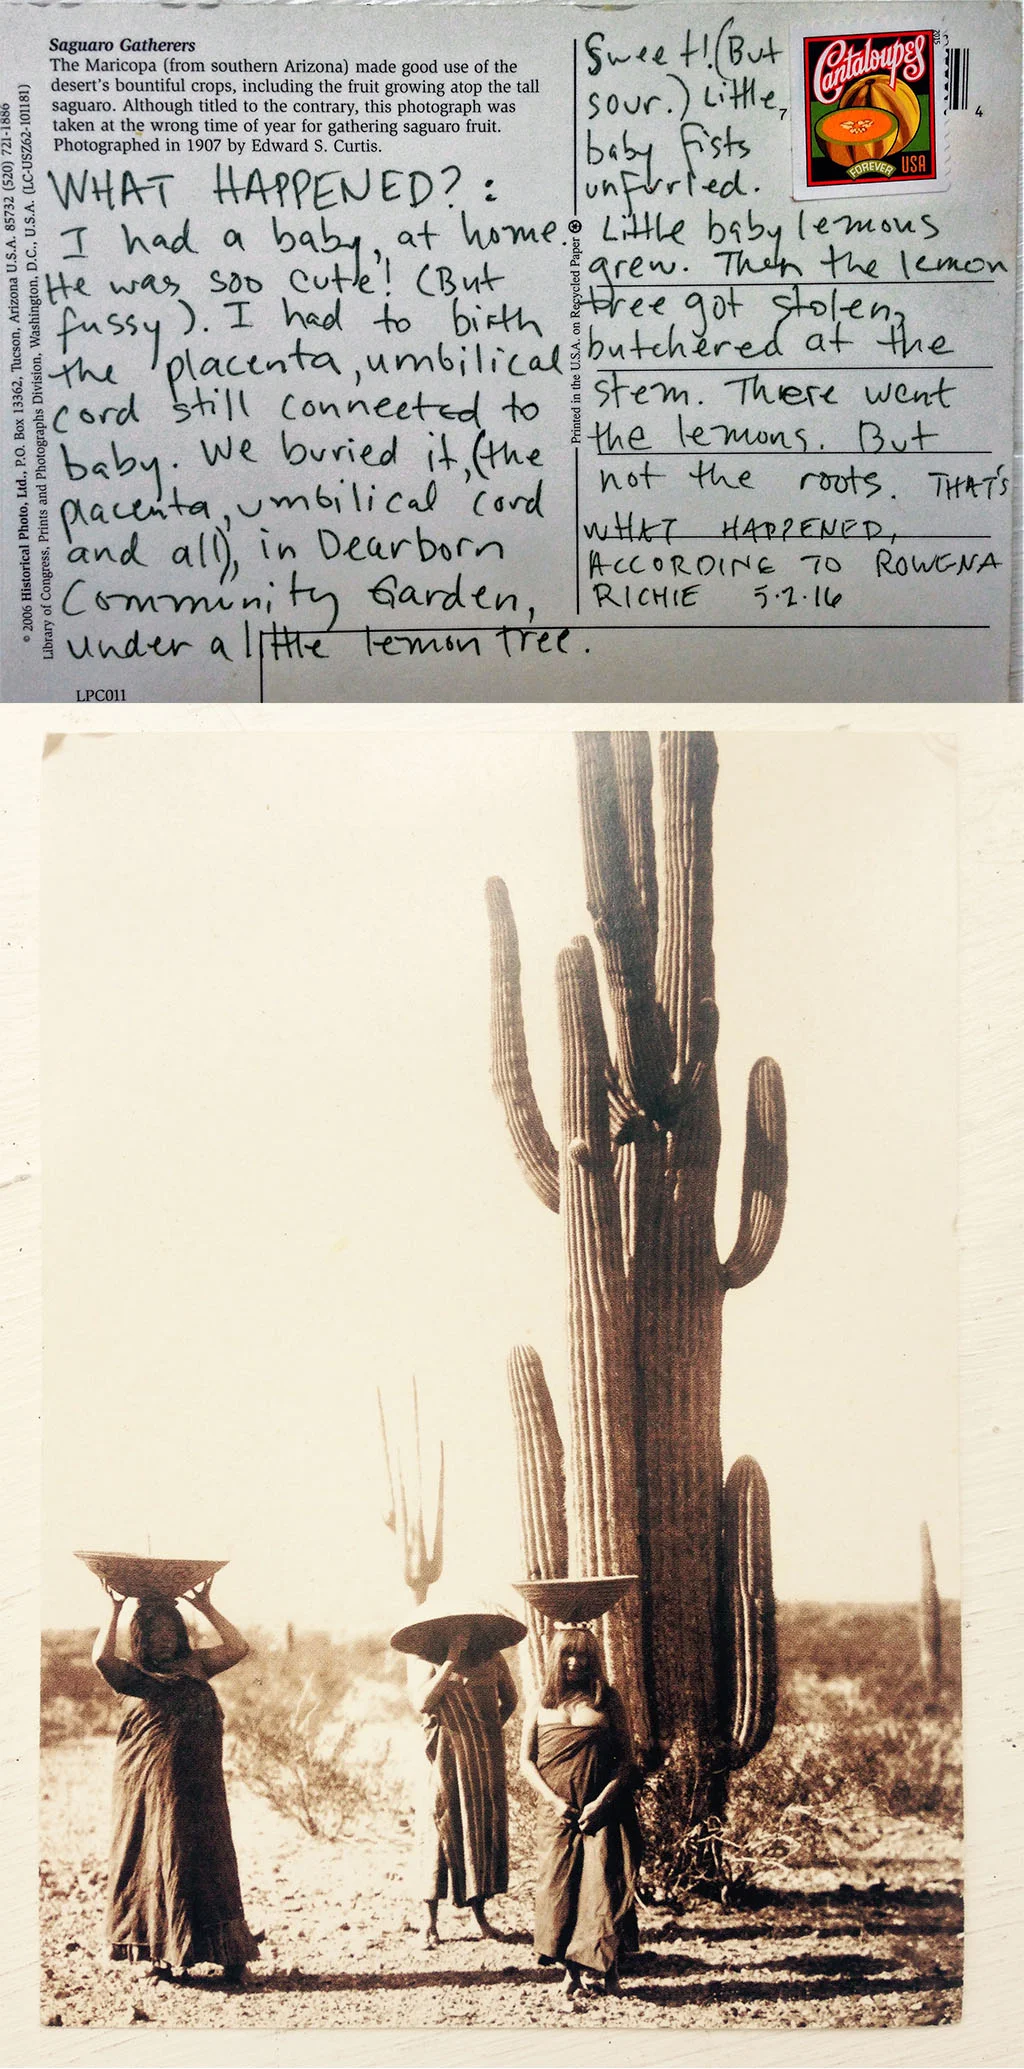 Saguaro Gatherers
The Maricopa (from southern Arizona) made good use of the
desert's bountiful crops, including the fruit growing atop the tall
saguaro. Although titled to the contrary, this photograph was
taken at the wrong time of year for gathering saguaro fruit.
Photographed in 1907 by Edward S. Curtis.
WHAT HAPPENED? :
I had a baby, at home.
He was soo cute! (But
fussy). I had to birth
the placenta, umbilical
cord still connected to
baby. We buried it, (the
placenta, umbilical cord
and all), in Dearborn
Community Garden,
under a little lemon tree.
Sweet! (But
sour.) Little,
baby fists
unfurled.
Little baby lemons
grew. Then the lemon
tree got stolen,
butchered at the
stem. There went
the lemons. But
not the roots. THAT'S
WHAT HAPPENED,
ACCORDING TO ROWENA
RICHIE 5.2.16
Cantaloupes
2015
FOREVER USA
7
4
Printed in the U.S.A. on Recycled Paper
© 2006 Historical Photo, Ltd., P.O. Box 13362, Tucson, Arizona U.S.A. 85732 (520) 721-1886
Library of Congress, Prints and Photographs Division, Washington, D.C., U.S.A. (LC-USZ62-101181)
LPC011